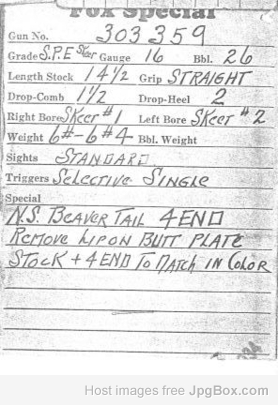 Fox Special
Gun No. 303359
Grade S.P.E Skeet Gauge 16 Bbl. 26
Length Stock 14 1/2 Grip STRAIGHT
Drop-Comb 1 1/2 Drop-Heel 2
Right Bore SKEET #1 Left Bore SKEET #2
Weight 6#-6#4 Bbl. Weight
Sights STANDARD
Triggers SELECTIVE SINGLE
Special
N.S. BEAVER TAIL 4END
REMOVE LIP ON BUTT PLATE
STOCK + 4END TO MATCH IN COLOR
Host images free JpgBox.com